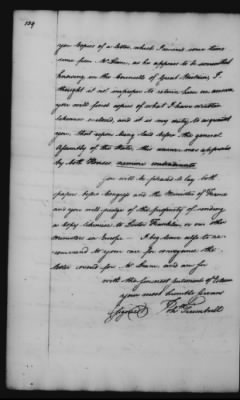 139
you copies of a letter which I received some time
since from Mr Deane, as he appears to be somewhat
knowing in the councills of Great Brittain, I
thought it not improper to return him an answer
you will find copies of what I have written
likewise inclosed, and it is my duty to acquaint
you, that upon being laid before the general
Assembly of this State, this answer was approved
by both Houses
you will be pleased to lay both
papers before Congress and the Minister of France
and you will judge of the propriety of sending
a copy likewise to Doctor Franklin or our other
ministers in Europe — I beg leave also to re
commend to your care for conveyance the
letter inclosed for Mr Deane and am Sir
with the sincerest sentiments of Esteem
your most humble Servant
(Signed) Jth Trumbull